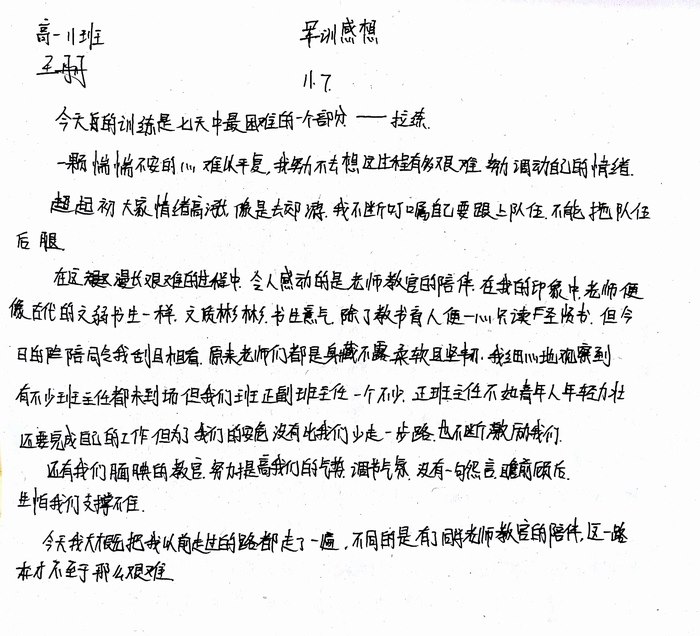 高一11班 军训感想
王丹丹 11.7.
今天的训练是七天中最困难的一个部分——拉练.
一颗惴惴不安的心难以平复,我努力不去想这过程有多艰难.努力调动自己的情绪.
起初大家情绪高涨,像是去郊游.我不断叮嘱自己要跟上队伍.不能拖队伍
后腿.
在这漫长艰难的过程中.令人感动的是老师教官的陪伴.在我的印象中,老师便
像古代的文弱书生一样.文质彬彬.书生意气.除了教书育人便一心只读圣贤书.但今
日的陪同令我刮目相看.原来老师们都是身藏不露.柔软且坚韧.我细心地观察到
有不少班主任都未到场.但我们班正副班主任一个不少.正班主任不如青年人年轻力壮
还要完成自己的工作.但为了我们的安危没有比我们少走一步路.也不断激励我们.
还有我们腼腆的教官.努力提高我们的气势.调节气氛.没有一句怨言.瞻前顾后.
生怕我们支撑不住.
今天我大概把我以前走过的路都走了一遍,不同的是有了同学老师教官的陪伴.这一路
才不至于那么艰难.